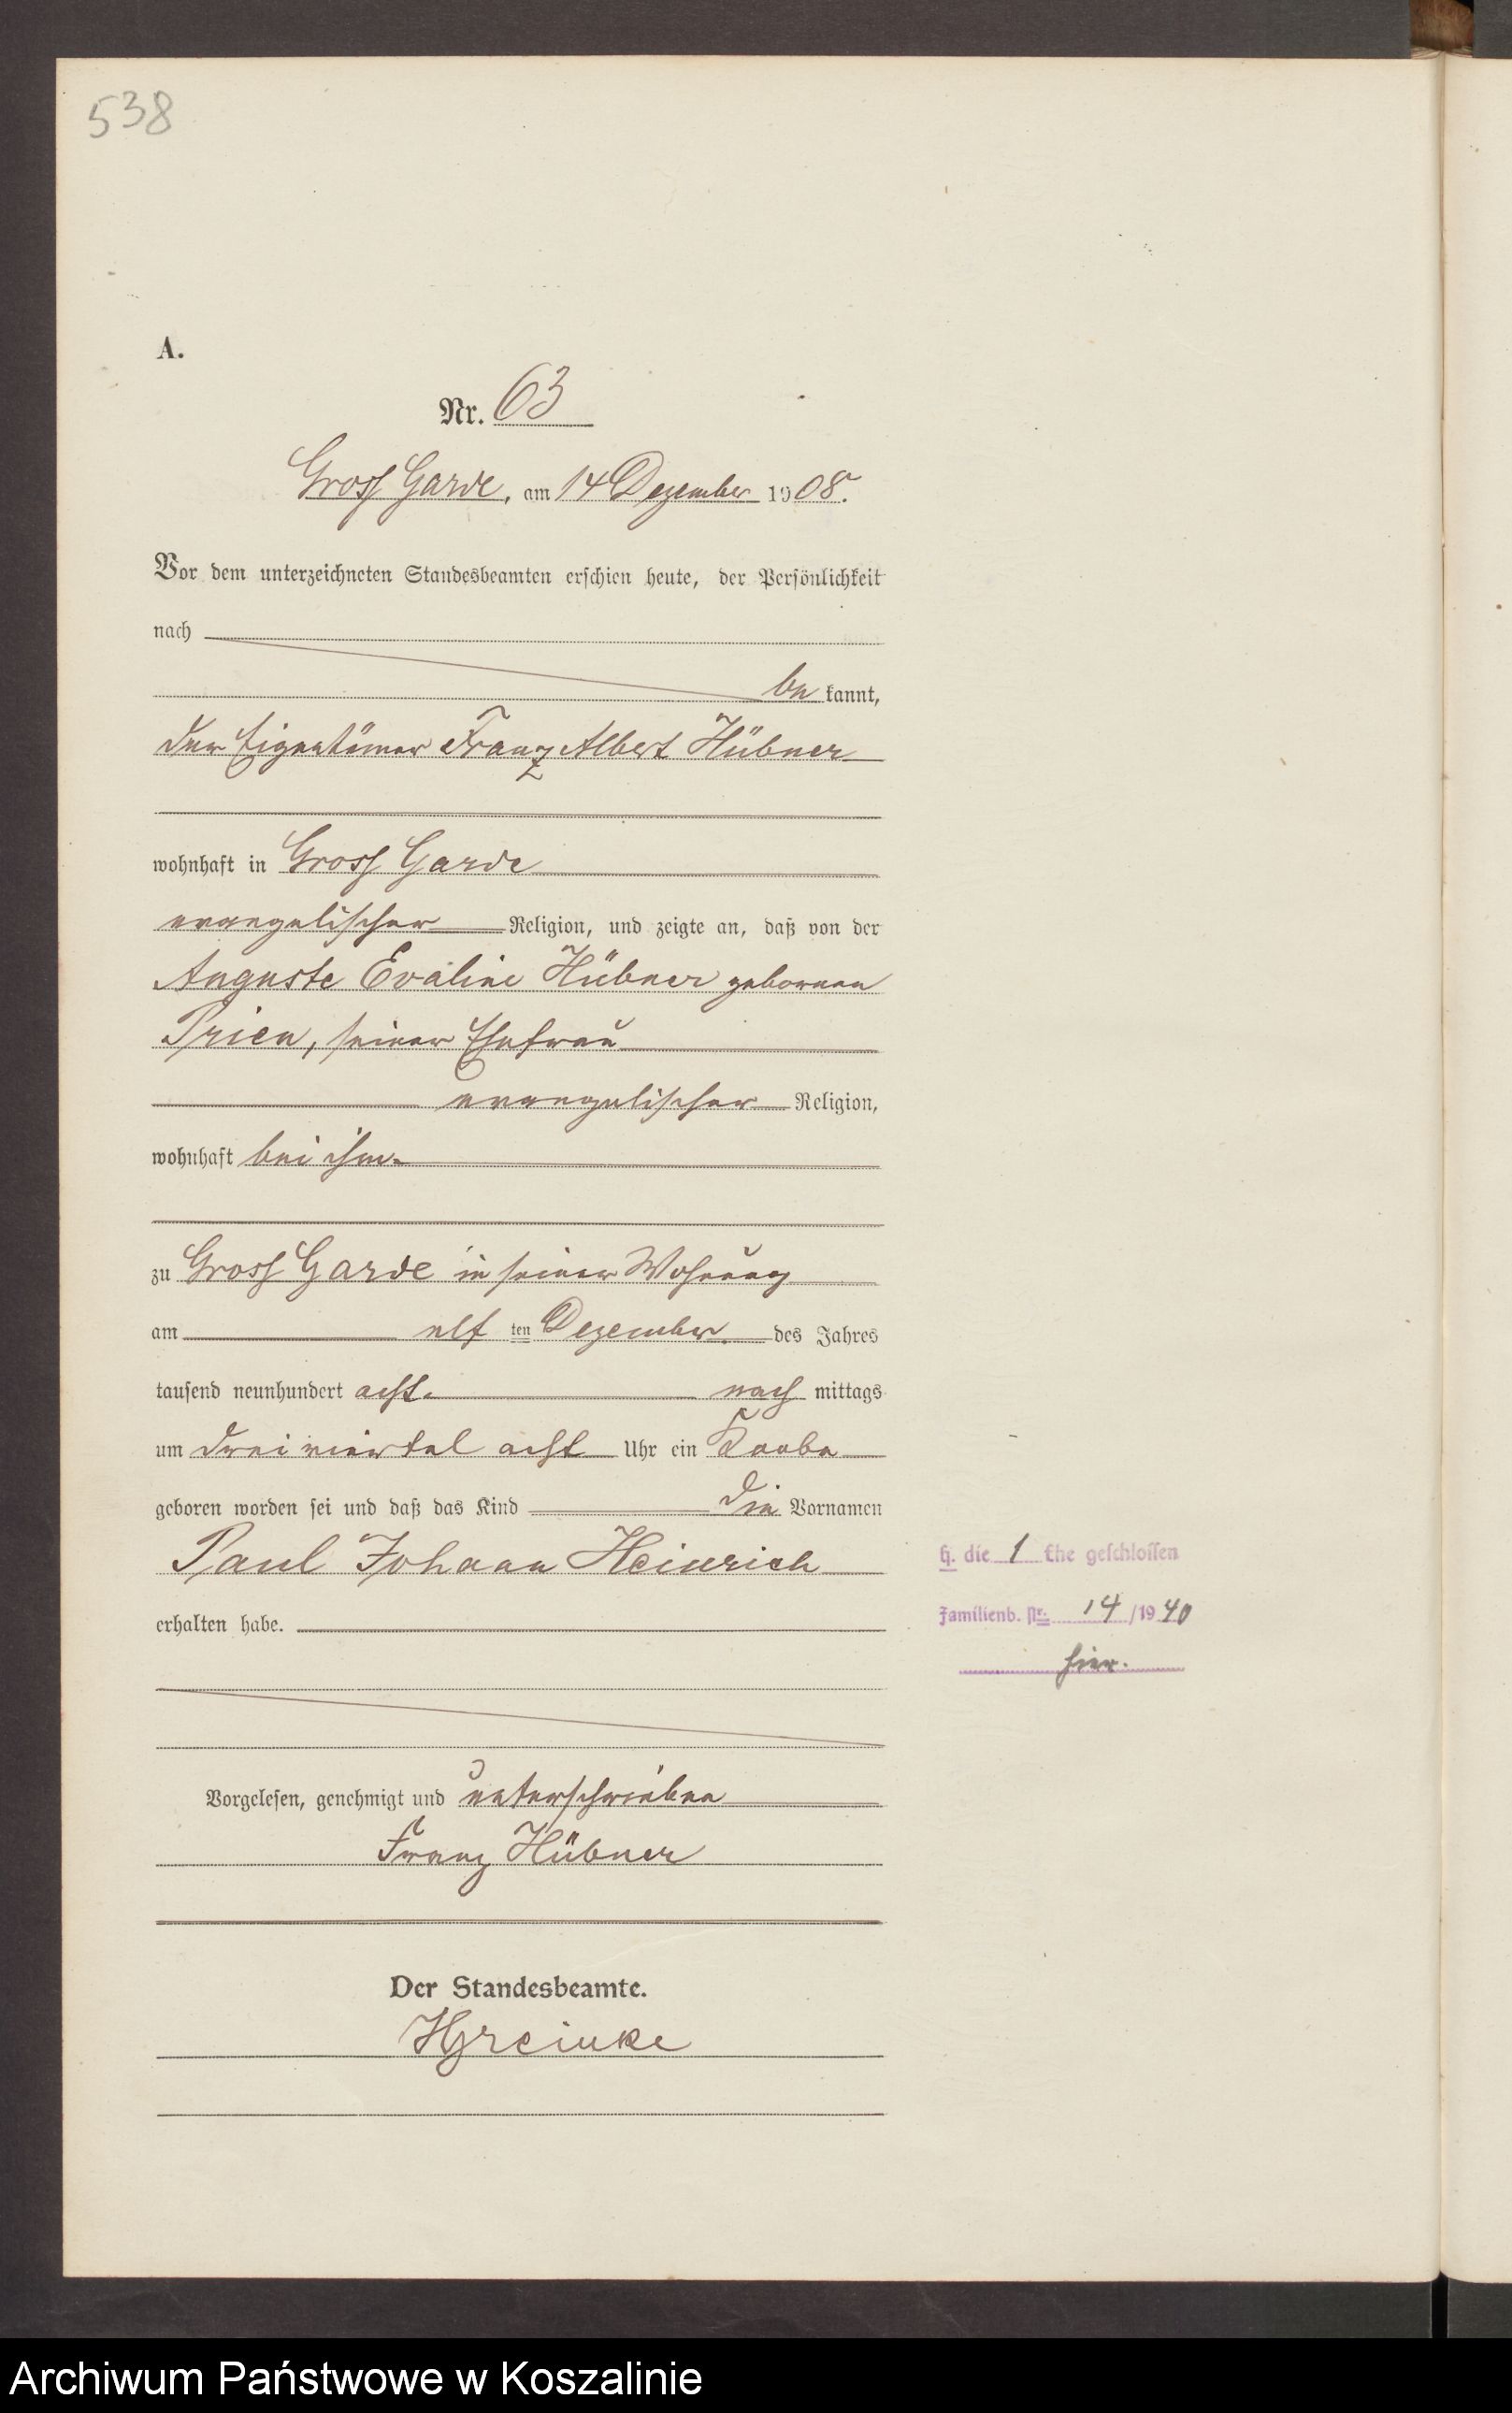 538
A.
Nr. 63
Gross Garde, am 14 Dezember 1908.
Vor dem unterzeichneten Standesbeamten erschien heute, der Persönlichkeit
nach
be kannt,
der Eigentümer Franz Albert Hübner
wohnhaft in Gross Garde
evangelischer Religion, und zeigte an, daß von der
Auguste Evaline Hübner geborenen
Prien, seiner Ehefrau
evangelischer Religion,
wohnhaft bei ihm
zu Gross Garde in seiner Wohnung
am elf ten Dezember des Jahres
tausend neunhundert acht. nach mittags
um dreiviertel acht Uhr ein Knabe
geboren worden sei und daß das Kind die Vornamen
Paul Johann Heinrich
H. die 1 Ehe geschlossen
erhalten habe.
Familienb. Nr. 14/1940
hier.
Vorgelesen, genehmigt und unterschrieben
Franz Hübner
Der Standesbeamte.
Archiwum Państwowe w Koszalinie